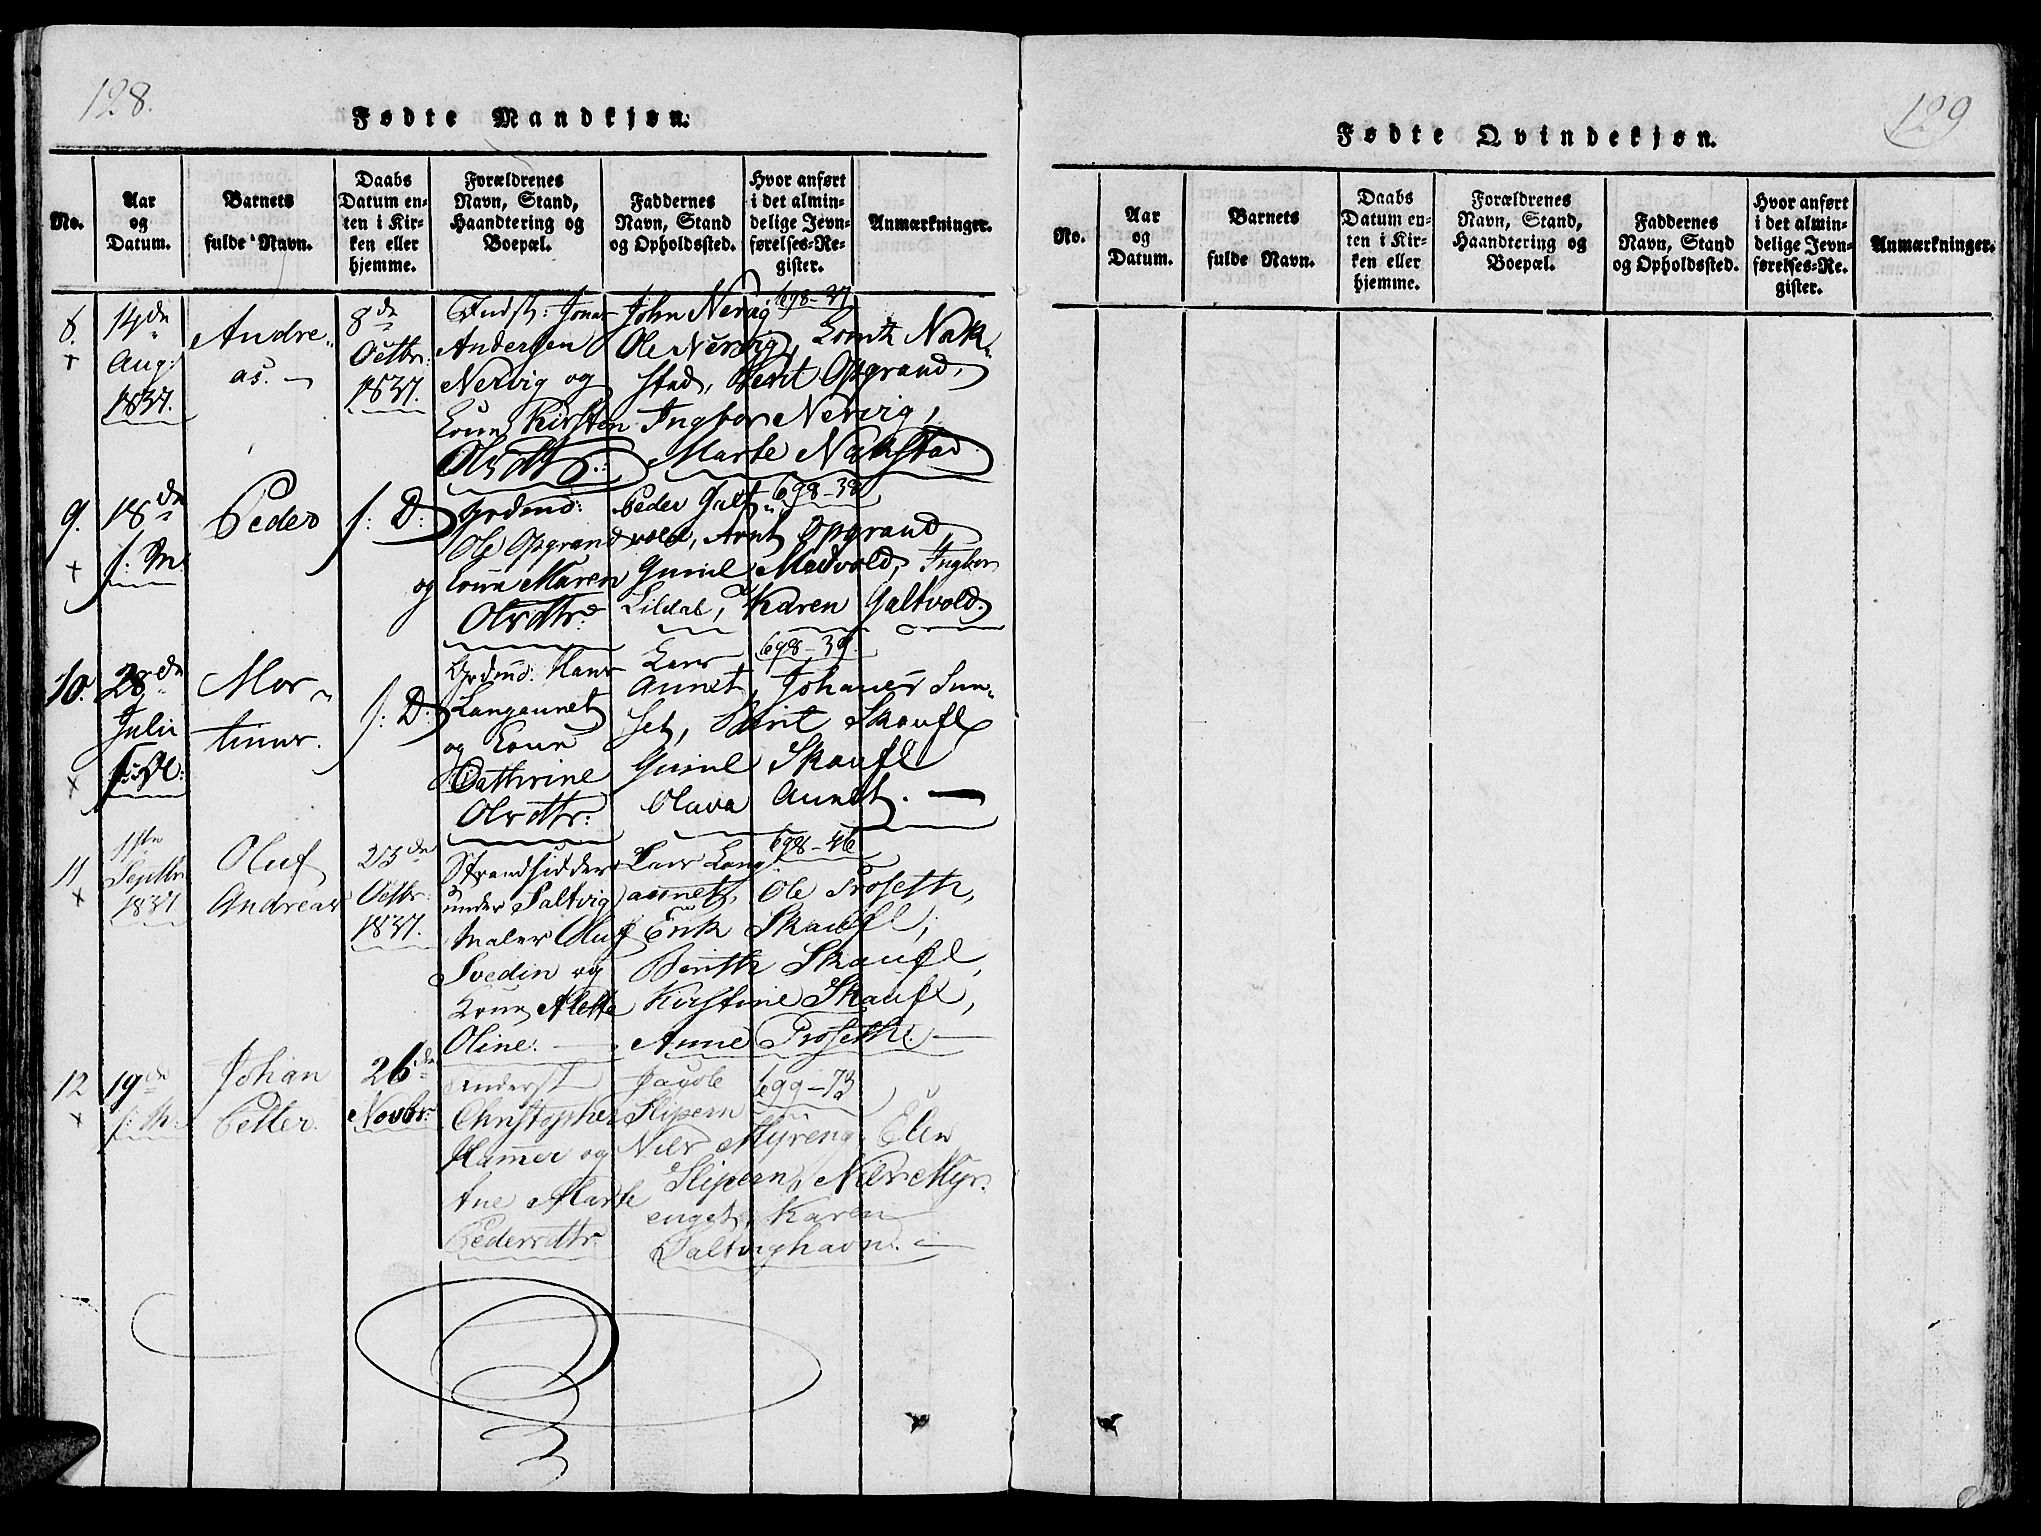 128.
Fødte Mandkjøn.
No.
Aar
og
Datum.
Barnets
fulde Navn.
Daabs
Datum en-
ten i Kir-
ken eller
hjemme.
Forældrenes
Navn, Stand,
Haandtering og
Boepæl.
Faddernes
Navn, Stand
og Opholdssted.
Hvor anført
i det almin-
delige Jevn-
førelses-Re-
gister.
Anmærkninger.
8.
14de
Aug:
1837.
Andre-
as.
8de
Octbr:
1837.
Indst: Jonas
Andersen
Nervig og
Kone Kirsten
Olsdtr:
698-37
John Nervig
Ole Nervig, Nak-
stad, Berit Opgrand,
Ingbor Nervig,
Marte Nakstad
9.
18de
s: M:
Peder
s: D:
Grdmd:
Ole Opgrand
og Kone Maren
Olsdtr:
698-38
Peder Galt-
vold, Arnt Opgrand
Gunil Medvold, Ingbor
Lildal, Karen Galtvold.
10.
28de
Julii
s: A:
Mor-
tinus.
s: D:
Grdmd: Hans
Langaunet
og Kone
Cathrine
Olsdtr:
698-39.
Lars
Aunet, Johanes Sun-
set, Berit Skaufl
Gunil Skaufl
Olava Aunet.
11
1ste
Septbr
1837
Oluf
Andreas
23de
Octbr:
1837.
Strandsidder
under Saltvig
Maler Oluf
Svedin og
Kone Aletta
Oline.
698-46
Lars Lang-
aunet, Ole Proseth,
Erik Skaufl,
Berith Skaufl,
Kirstine Skaufl,
Anne Proseth.
12
19de
s: M:
Johan
Petter.
26de
Novbr:
Inderst
Christopher
Hamer og
Ane Marte
Pedersdtr
699-73
Jacob
Slipern
Nils Myreng, Elen
Slipern, Nils Myr-
enget, Karen
Saltvighavn.
129
Fødte Qvindekjøn.
No.
Aar
og
Datum.
Barnets
fulde Navn.
Daabs
Datum en-
ten i Kir-
ken eller
hjemme.
Forældrenes
Navn, Stand,
Haandtering og
Boepæl.
Faddernes
Navn, Stand
og Opholdssted.
Hvor anført
i det almin-
delige Jevn-
førelses-Re-
gister.
Anmærkninger.